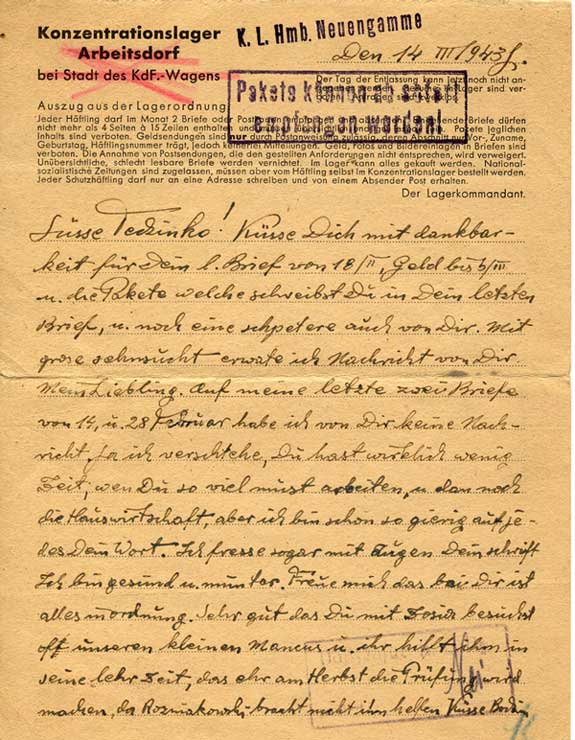 Konzentrationslager
Arbeitsdorf
bei Stadt des KdF.-Wagens
K. L. Hmb. Neuengamme
Den 14 III/1943 J.
Der Tag der Entlassung kann jetzt noch nicht an-
Pakete können ab sofort
empfangen werden!
Auszug aus der Lagerordnung
Jeder Häftling darf im Monat 2 Briefe oder Post
nicht mehr als 4 Seiten à 15 Zeilen enthalten
Inhalts sind verboten. Geldsendungen sin
nur durch Postanweis
Geburtstag, Häftlingsnummer trägt, jedoch ke
Mitteilungen. Geld, Fotos und in Briefen sind
verboten. Die Annahme von Postsendungen, die den gestellten Anforderungen nicht entsprechen, wird verweigert.
Unübersichtliche, schlecht lesbare Briefe werden vernichtet. Im Lager kann alles gekauft werden. National-
sozialistische Zeitungen sind zugelassen, müssen aber vom Häftling selbst im Konzentrationslager bestellt werden.
Jeder Schutzhäftling darf nur an eine Adresse schreiben und von einem Absender Post erhalten.
Der Lagerkommandant.
Süsse Tedzinko! Küsse Dich mit dankbar-
keit für Dein l. Brief von 18/II, Geld bis 6/III
u. die Pakete welche schreibst Du in Dein letzten
Brief, u. noch eine schpetere auch von Dir. Mit
grose sehnsucht erwate ich Nachricht von Dir
Mein Liebling. Auf meine letzte zwei Briefe
von 14, u. 28 Februar habe ich von Dir keine Nach-
richt. Ja ich verschtehe, Du hast wirklich wenig
Zeit, wen Du so viel musst arbeiten, u. dan noch
die Hauswirtschaft, aber ich bin schon so gierig auf je-
des Dein Wort. Ich fresse sogar mit Augen Dein schrift
Ich bin gesund u. munter. Freue mich das bei Dir ist
alles inordnung. Sehr gut das Du mit Zosia besuchst
oft unseren kleinen u. ihr hilft ihm in
seine lehr Zeit, das ehr am Herbst die Prüfung wird
machen, da Rozniakowski bracht nicht ihm helfen. Küsse